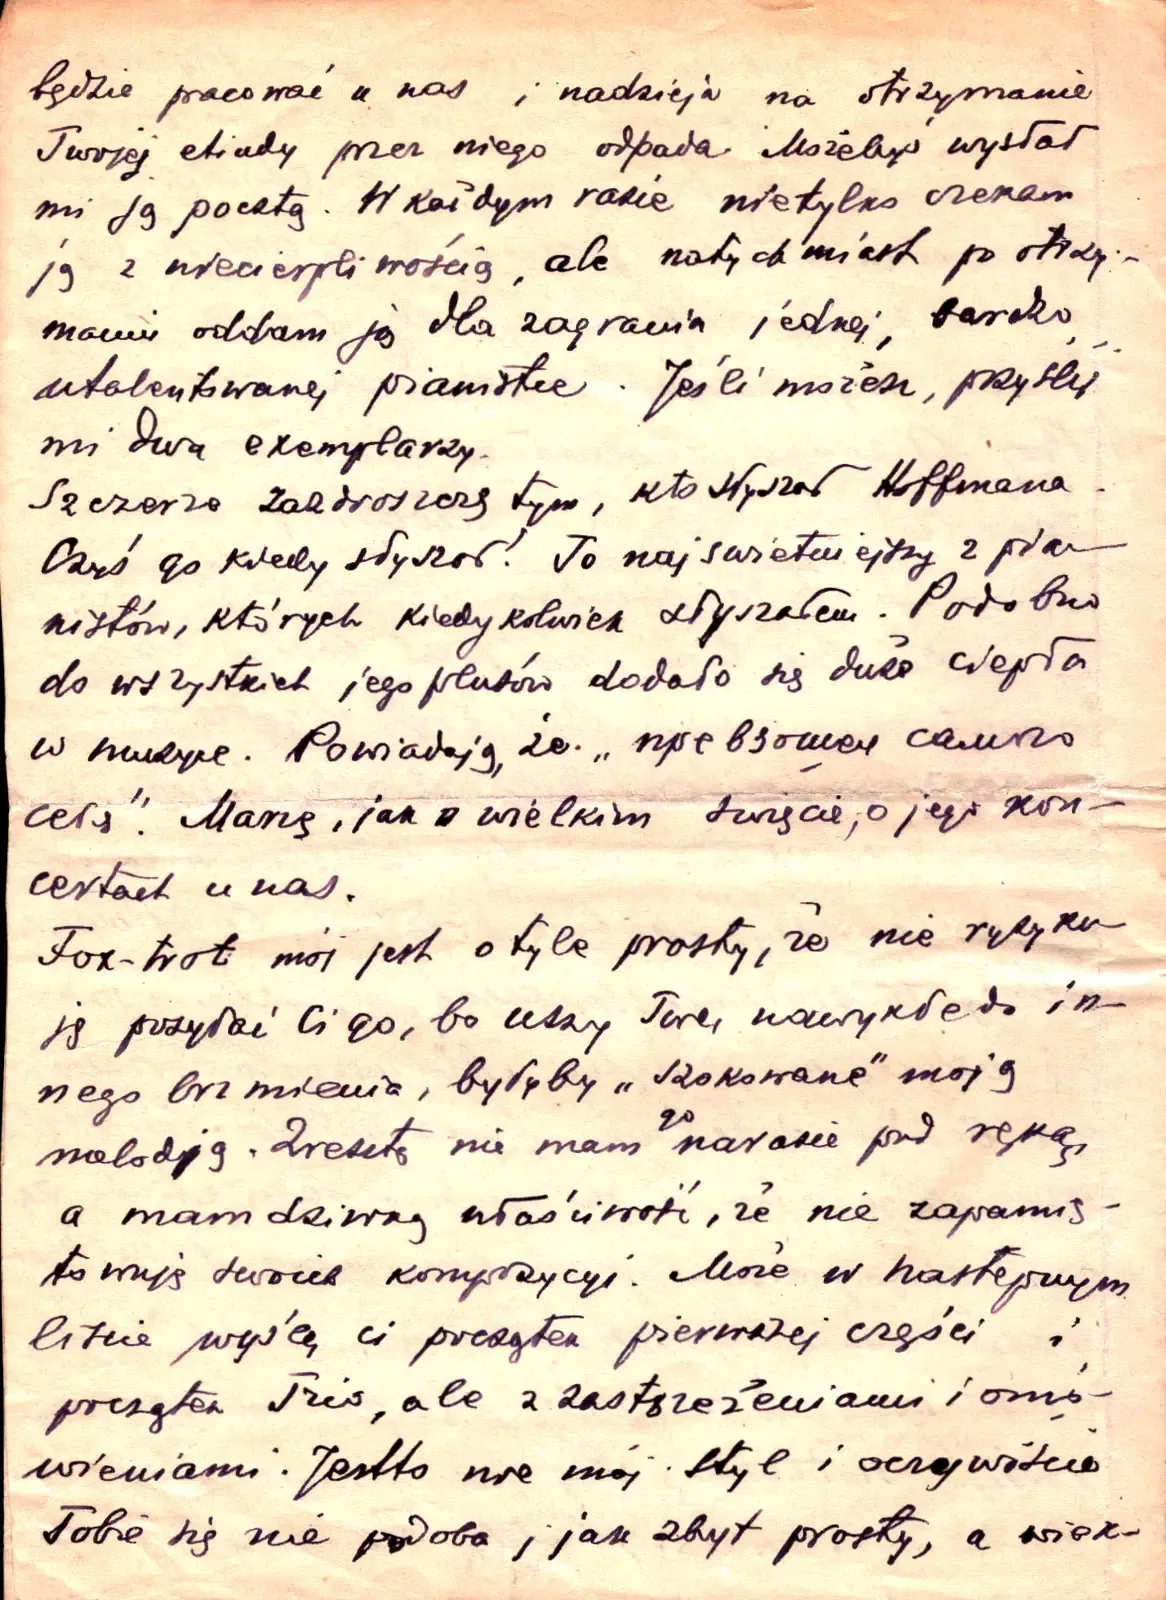 będzie pracować u nas i nadzieja na otrzymanie
Twojej etiudy przez niego odpada. Możebyś wysłał
mi ją pocztą. W każdym razie nietylko czekam
ją z niecierpliwością, ale natychmiast po otrzy-
maniu oddam ją dla zagrania jednej, bardzo
utalentowanej pianistce. Jeśli możesz, przyślij
mi dwa exemplarzy.
Szczerze zazdroszczę tym, kto słyszał Hoffmana.
Czyś go kiedy słyszał? To najswietniejszy z pia-
nistów, których kiedykolwiek słyszałem. Podobno
do wszystkich jego plusów dodało się duże ciepła
w muzyce. Powiadają, że „превзошел самого
себя". Marzę, jak o wielkim święcie, o jego kon-
certach u nas.
Fox-trot mój jest o tyle prosty, że nie ryzyku-
ję posyłać Ci go, bo uszy Twe, nawykłe do in-
nego brzmienia, byłyby „szokowane" moją
melodją. Zresztą nie mam go narazie pod ręką,
a mam dziwną właściwość, że nie zapamię-
towuję swoich kompozycyi. Może w następnym
liście wyślę ci początek pierwszej części i
początek Trio, ale z zastrzeżeniami i omó-
wieniami. Jestto nie mój styl i oczywiście
Tobie się nie podoba, jak zbyt prosty, a więk-